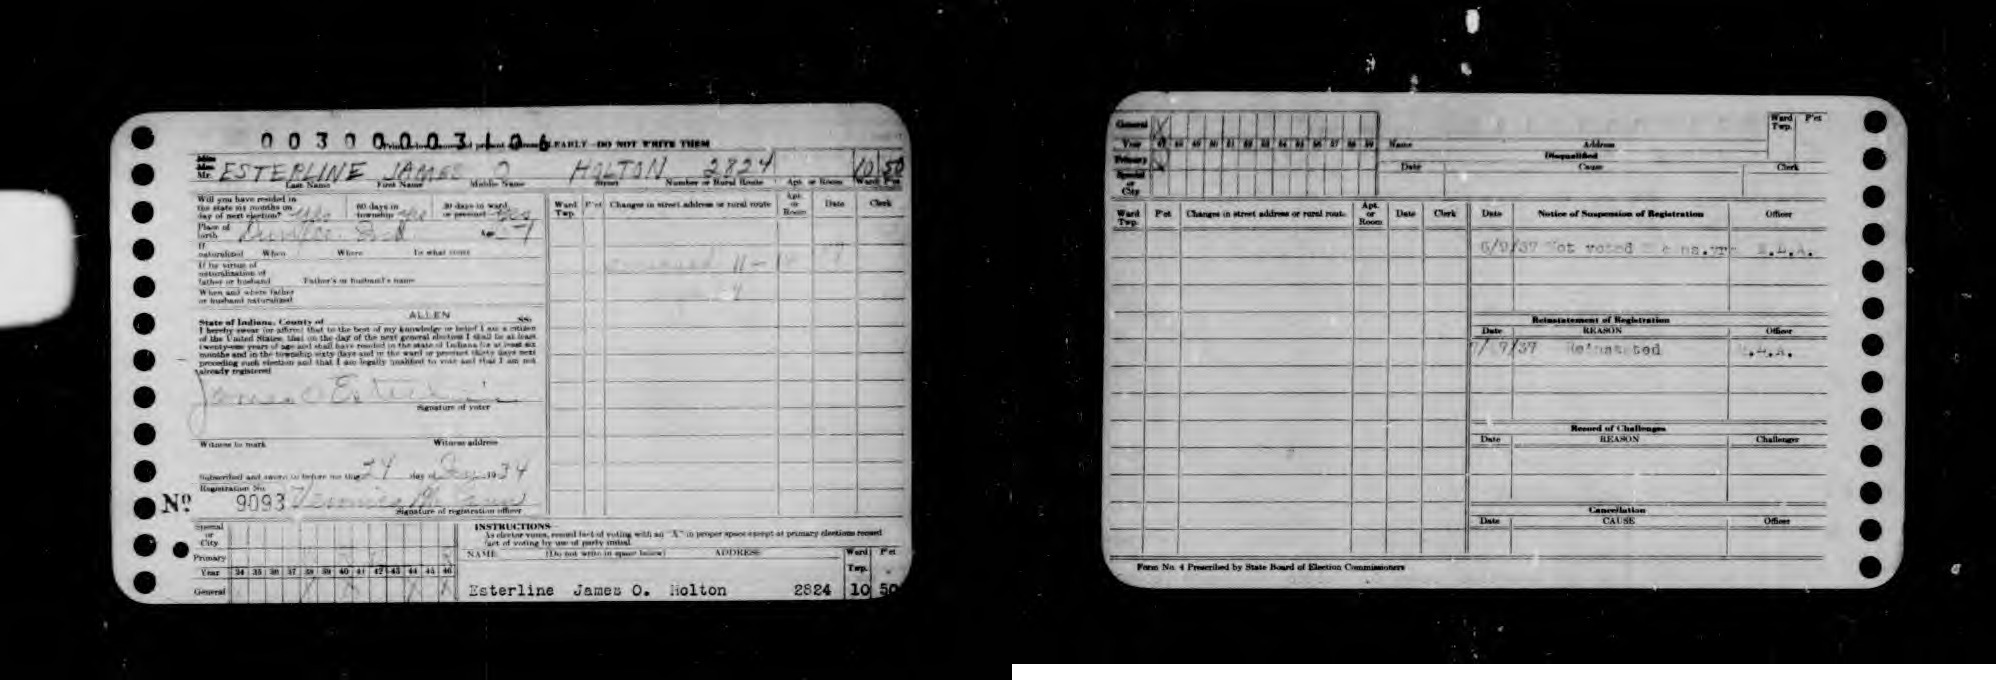 00300003106
EARLY DO NOT WRITE THEM
Miss
Mrs.
Mr. ESTERLINE JAMES O HOLTON 2824 10 50
Last Name First Name Middle Name Street Number or Rural Route Apt. or Room Ward P'ct
Will you have resided in
the state six months on
day of next election? Yes 60 days in township Yes 30 days in ward or precinct Yes
Place of
birth Ind
If
naturalized When Where In what court
If by virtue of
naturalization of
father or husband Father's or husband's name
When and where father
or husband naturalized
State of Indiana, County of ALLEN SS:
I hereby swear (or affirm) that to the best of my knowledge or belief I am a citizen
of the United States, that on the day of the next general election I shall be at least
twenty-one years of age and shall have resided in the state of Indiana for at least six
months and in the township sixty days and in the ward or precinct thirty days next
preceding such election and that I am legally qualified to vote and that I am not
already registered
James O Esterline
Signature of voter
Witness to mark Witness address
Subscribed and sworn to before me this 24 day of 1934
Registration No.
No. 9093
Signature of registration officer
Ward Twp. P'ct Changes in street address or rural route Apt. or Room Date Clerk
Special
or
City
Primary
Year 34 35 36 37 38 39 40 41 42 43 44 45 46
General X X X X
INSTRUCTIONS
As elector votes, record fact of voting with an "X" in proper space except at primary elections record
fact of voting by use of party initial.
NAME (Do not write in space below) ADDRESS Ward Twp. P'ct
Esterline James O. Holton 2824 10 50
General X
Year 47 48 49 50 51 52 53 54 55 56 57 58 59
Primary
Special
or
City
Name Address Ward Twp. P'ct
Disqualified
Date Cause Clerk
Ward Twp. P'ct Changes in street address or rural route Apt. or Room Date Clerk
Date Notice of Suspension of Registration Officer
6/9/37 Not voted
Reinstatement of Registration
Date REASON Officer
/37 Reinstated
Record of Challenges
Date REASON Challenger
Cancellation
Date CAUSE Officer
Form No. 4 Prescribed by State Board of Election Commissioners